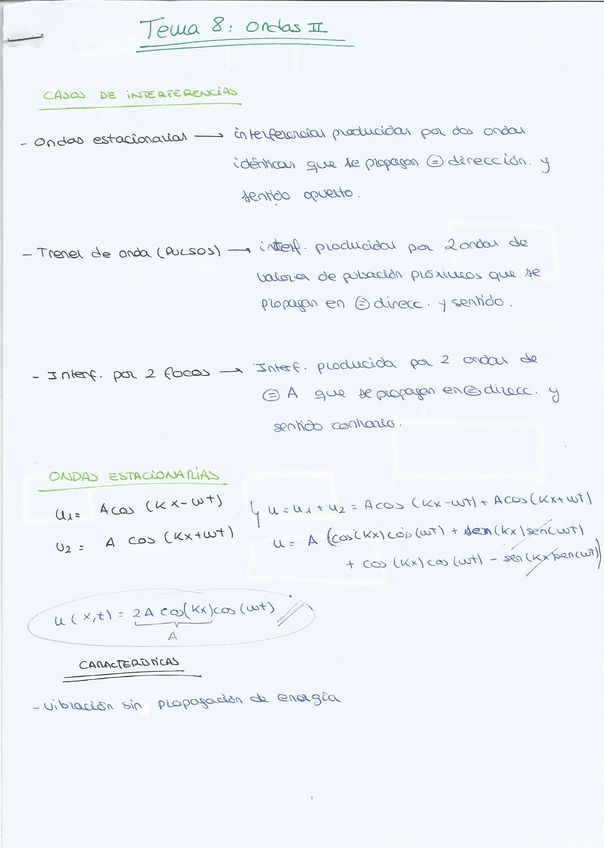 Tema 8: Ondas II
CASOS DE INTERFERENCIAS
- Ondas estacionarias → interferencias producidas por dos ondas
idénticas que se propagan ⊜ dirección y
sentido opuesto.
- Trenes de onda (PULSOS) → interf. producidas por 2 ondas de
valores de pulsación próximos que se
propagan en ⊜ direcc. y sentido.
- Interf. por 2 focos → Interf. producida por 2 ondas de
⊜ A que se propagan en ⊜ direcc. y
sentido contrario.
ONDAS ESTACIONARIAS
u1 = A cos (Kx-ωt)
u2 = A cos (Kx+ωt)
u = u1 + u2 = A cos (Kx-ωt) + A cos (Kx+ωt)
u = A (cos(Kx)cos(ωt) + sen(Kx)sen(ωt)
+ cos(Kx)cos(ωt) - sen(Kx)sen(ωt))
u(x,t) = 2A cos(Kx)cos(ωt)
A
CARACTERÍSTICAS
- vibración sin propagación de energía